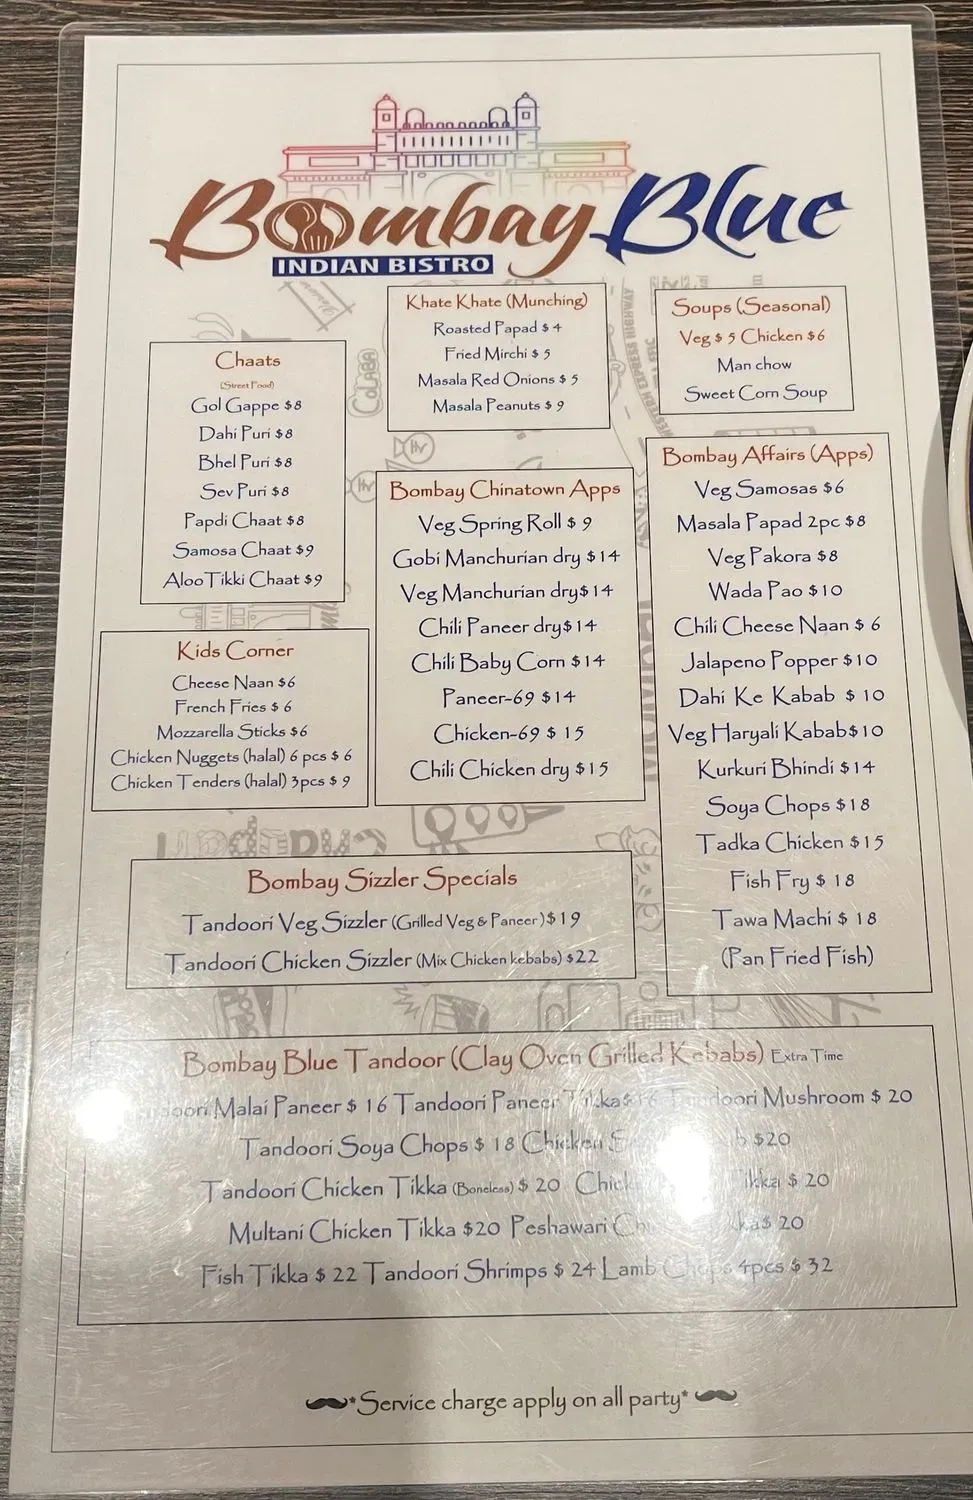 Bombay Blue
INDIAN BISTRO
Khate Khate (Munching)
Roasted Papad $ 4
Fried Mirchi $ 5
Masala Red Onions $ 5
Masala Peanuts $ 9
Soups (Seasonal)
Veg $ 5 Chicken $6
Man chow
Sweet Corn Soup
Chaats
(Street Food)
Gol Gappe $8
Dahi Puri $8
Bhel Puri $8
Sev Puri $8
Papdi Chaat $8
Samosa Chaat $9
Aloo Tikki Chaat $9
Bombay Chinatown Apps
Veg Spring Roll $ 9
Gobi Manchurian dry $14
Veg Manchurian dry$14
Chili Paneer dry$14
Chili Baby Corn $14
Paneer-69 $14
Chicken-69 $ 15
Chili Chicken dry $15
Bombay Affairs (Apps)
Veg Samosas $6
Masala Papad 2pc $8
Veg Pakora $8
Wada Pao $10
Chili Cheese Naan $ 6
Jalapeno Popper $10
Dahi Ke Kabab $ 10
Veg Haryali Kabab$10
Kurkuri Bhindi $14
Soya Chops $18
Tadka Chicken $15
Fish Fry $ 18
Tawa Machi $ 18
(Pan Fried Fish)
Kids Corner
Cheese Naan $6
French Fries $ 6
Mozzarella Sticks $6
Chicken Nuggets (halal) 6 pcs $ 6
Chicken Tenders (halal) 3pcs $ 9
Bombay Sizzler Specials
Tandoori Veg Sizzler (Grilled Veg & Paneer)$19
Tandoori Chicken Sizzler (Mix Chicken kebabs) $22
Bombay Blue Tandoor (Clay Oven Grilled Kebabs) Extra Time
Malai Paneer $ 16 Tandoori Paneer Tikka$16 Tandoori Mushroom $ 20
Tandoori Soya Chops $ 18 Chicken $20
Tandoori Chicken Tikka (Boneless) $ 20 Tikka $ 20
Multani Chicken Tikka $20 Peshawari $ 20
Fish Tikka $ 22 Tandoori Shrimps $ 24 Lamb Chops 4pcs $ 32
*Service charge apply on all party*
COLABA